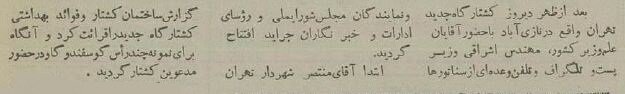 بعد ازظهر دیروز کشتارگاه جدید
تهران واقع درنازی‌آباد باحضور آقایان
علم وزیر کشور، مهندس اشراقی وزیر
پست و تلگراف و تلفن وعده‌ای ازسناتورها
ونمایندگان مجلس شورایملی و رؤسای
ادارات و خبر نگاران جراید افتتاح
گردید.
ابتدا آقای منتصر شهردار تهران
گزارش ساختمان کشتار وفوائد بهداشتی
کشتارگاه جدید راقرائت کرد و آنگاه
برای نمونه چندرأس گوسفند و گاو درحضور
مدعوین کشتار گردید.